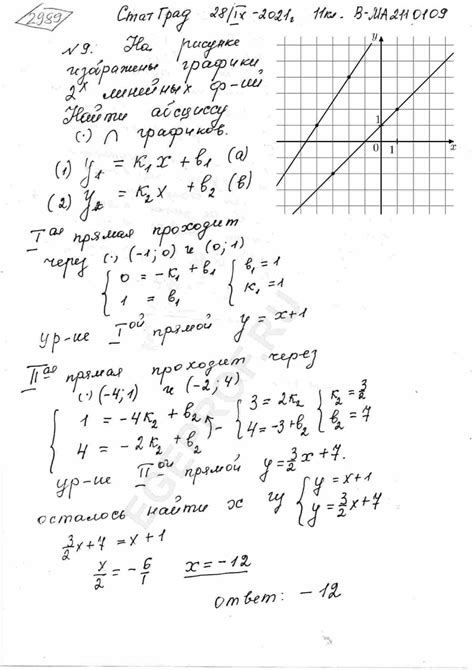 2989
СтатГрад 28/IX-2021г. 11кл. В-МА2110109
N9. На рисунке
изображены графики
2х линейных ф-ий
Найти абсциссу
(·) ∩ графиков.
(1) y₁ = k₁x + в₁ (а)
(2) y₂ = k₂x + в₂ (в)
y
1
0
1
x
Iая прямая проходит
через (·) (-1; 0) и (0; 1)
{ 0 = -k₁ + в₁ { в₁ = 1
1 = в₁ k₁ = 1
ур-ие Iой прямой y = x+1
IIая прямая проходит через
(·) (-4; 1) и (-2; 4)
{ 1 = -4k₂ + в₂ - { 3 = 2k₂ { k₂ = 3/2
4 = -2k₂ + в₂ 4 = -3+в₂ в₂ = 7
ур-ие IIой прямой y = 3/2x + 7.
осталось найти x из { y = x+1
y = 3/2x + 7
3/2x + 7 = x + 1
x/2 = - 6/1 x = -12
ответ: -12
EGEPROF.RU